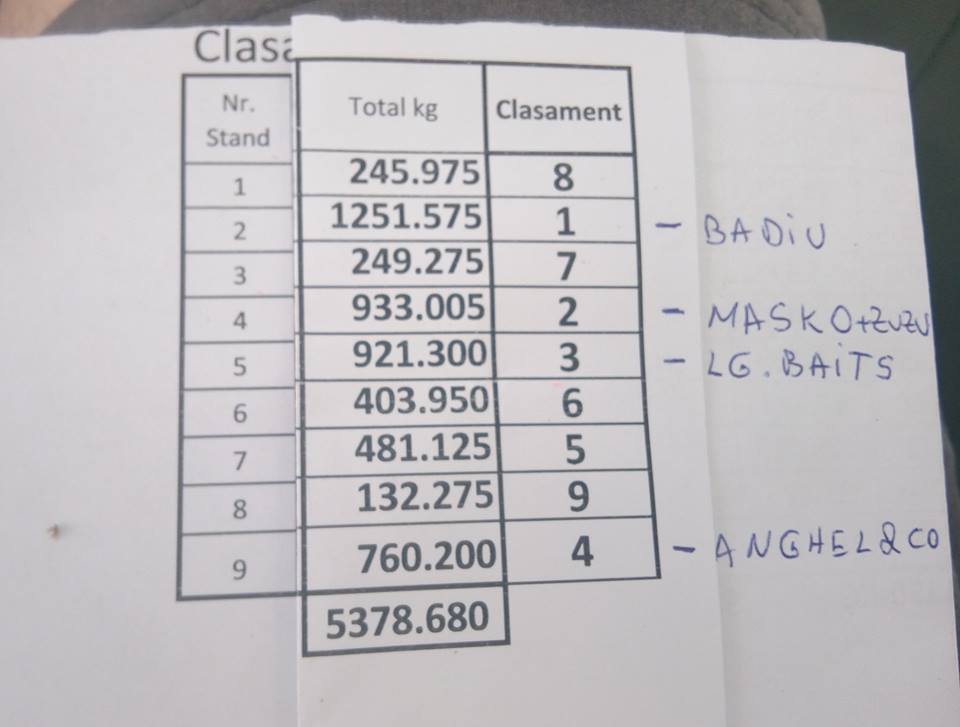 Clasa
Nr. Stand Total kg Clasament
1 245.975 8
2 1251.575 1 - BADiU
3 249.275 7
4 933.005 2 - MASKO+ZUZU
5 921.300 3 - LG. BAiTS
6 403.950 6
7 481.125 5
8 132.275 9
9 760.200 4 - ANGHEL&CO
5378.680